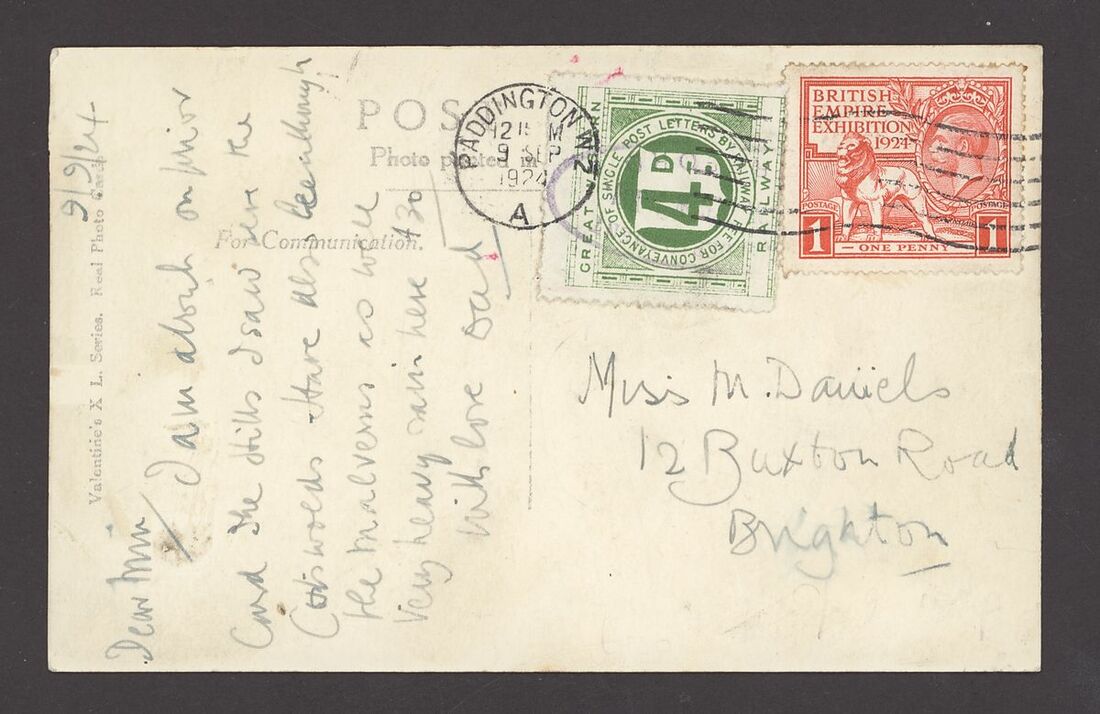 9/9/24
Dear Min
I am about on prior
card the hills I saw were the
Cotswolds Have also been through
the Malverns as well
Very heavy rain here 4 30
With love Dad
Valentine's X L. Series. Real Photo
POS
Photo printed in
For Communication.
PADDINGTON W2
12 15 PM
9 SEP
1924
A
GREAT WESTERN
FEE FOR CONVEYANCE OF SINGLE POST LETTERS BY RAILWAY
4D
RAILWAY
BRITISH
EMPIRE
EXHIBITION
1924
POSTAGE
POSTAGE
1
ONE PENNY
1
Miss M. Daniels
12 Buxton Road
Brighton